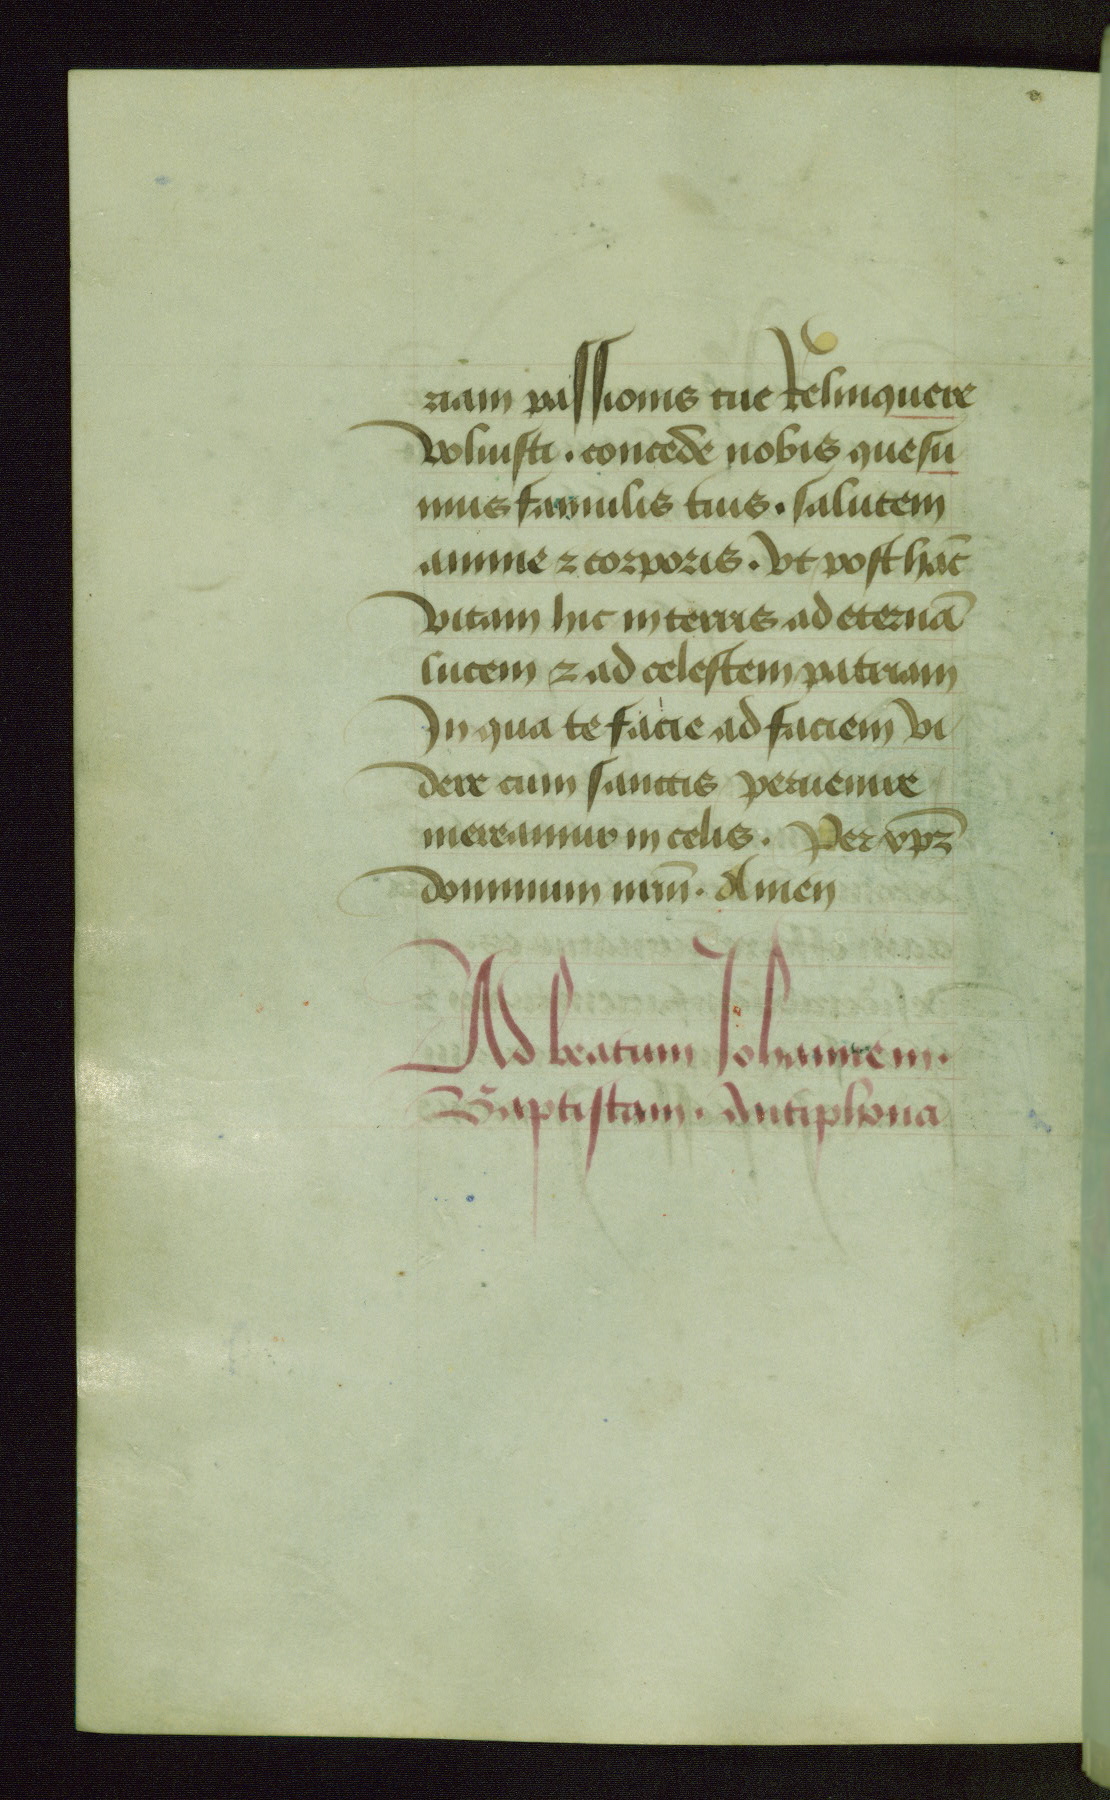 riam passionis tue Relinquere
voluisti . concede nobis quesu
mus famulis tuis . salutem
anime ⁊ corporis . vt post hāc
vitam hic in terris ad eternā
lucem ⁊ ad celestem patriam
In qua te facie ad faciem vi
dere cum sanctis peruenire
mereamur in celis . Per xp̄ꝫ
dominum nr̄m̄ . Amen
Ad beatum Johannem .
Baptistam . Antiphona